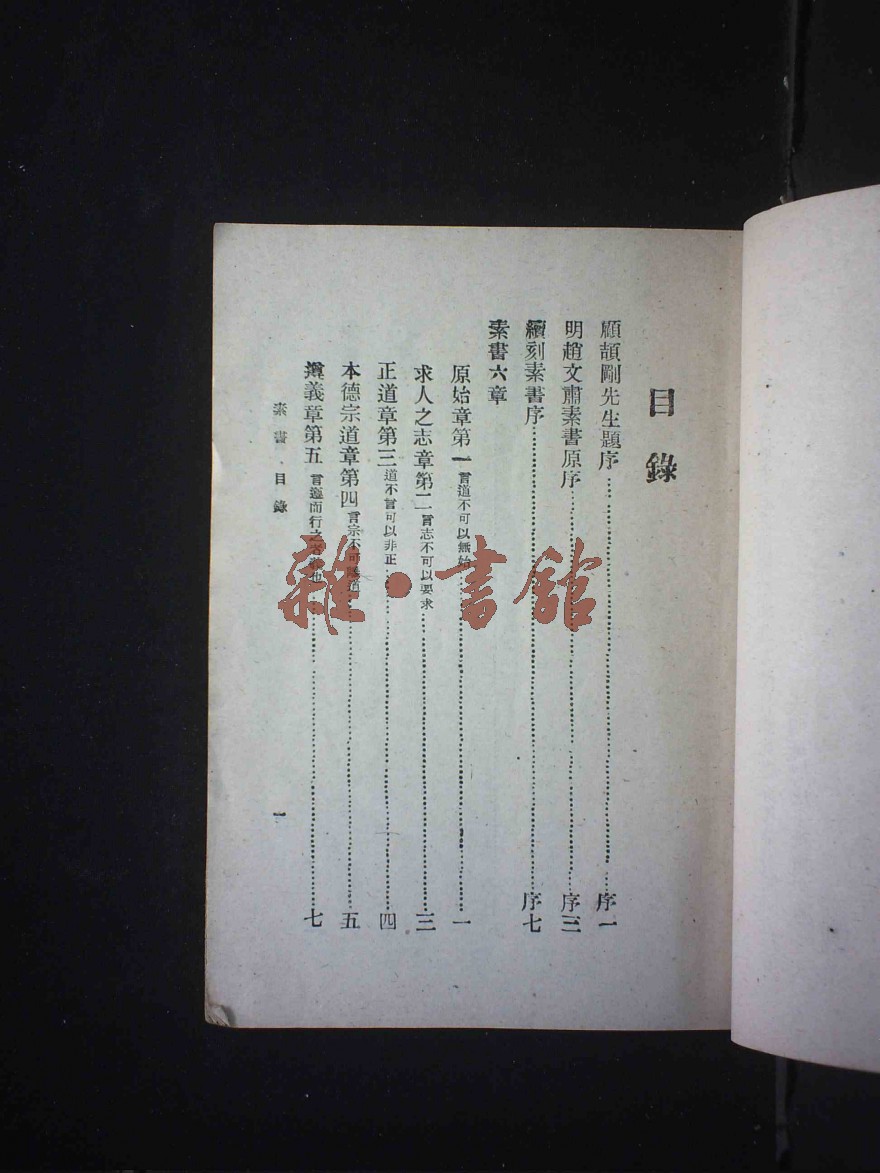 目錄
顧頡剛先生題序……序一
明趙文肅素書原序……序三
續刻素書序……序七
素書六章
原始章第一 言道不可以無始……一
求人之志章第二 言志不可以要求……三
正道章第三 道不言可以非正……四
本德宗道章第四 言宗不可離道……五
遵義章第五 言遵而行之者義也……七
素書 目錄
一
雜·書館